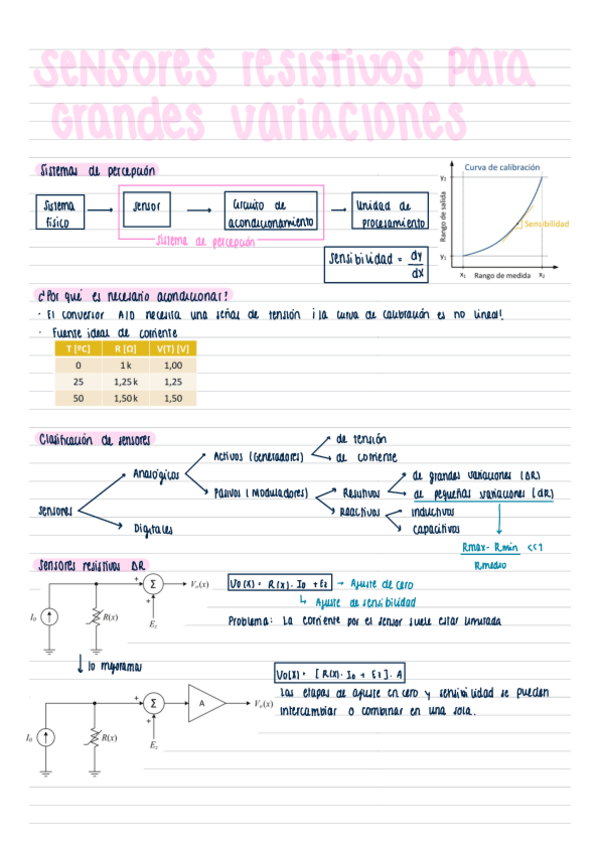 Sensores resistivos para
Grandes variaciones
Sistemas de percepción
Sistema físico
sensor
Circuito de acondicionamiento
Unidad de procesamiento
Sistema de percepción
Sensibilidad = dy/dx
Curva de calibración
Rango de salida
y₂
y₁
Sensibilidad
x₁ Rango de medida x₂
¿Por qué es necesario acondicionar?
· El conversor A/D necesita una señas de tensión ¡la curva de calibración es no lineal!
· Fuente ideas de corriente
T [ºC] R [Ω] V(T) [V]
0 1 k 1,00
25 1,25 k 1,25
50 1,50 k 1,50
Clasificación de sensores
sensores
Analógicos
Digitales
Activos (Generadores)
de tensión
de corriente
Pasivos (Moduladores)
Resistivos
de grandes variaciones (ΔR)
de pequeñas variaciones (dR)
Reactivos
inductivos
capacitivos
Rmax - Rmin / Rmedio <<1
Sensores resistivos ΔR
I₀
R(x)
+
Σ
+
E_z
V_o(x)
Vo(x) = R(x) · Io + Ez → Ajuste de cero
↳ Ajuste de sensibilidad
Problema: La corriente por el sensor suele estar limitada
↓ lo mejoramos
I₀
R(x)
+
Σ
+
E_z
A
V_o(x)
Vo(x) = [R(x) · Io + Ez] · A
Las etapas de ajuste en cero y sensibilidad se pueden
intercambiar o combinar en una sola.